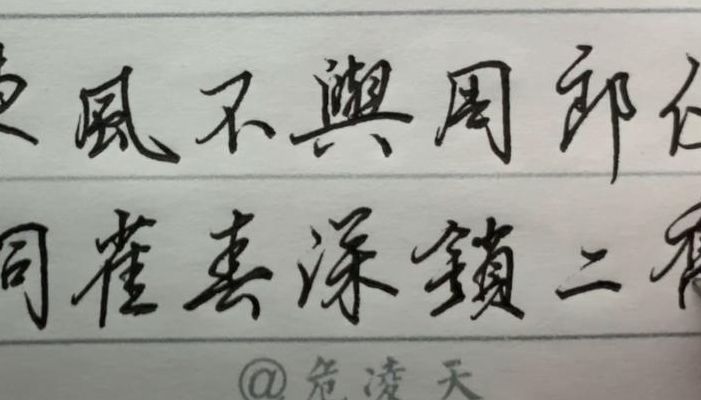 風不與周郎
同雀春深鎖二
@危凌天